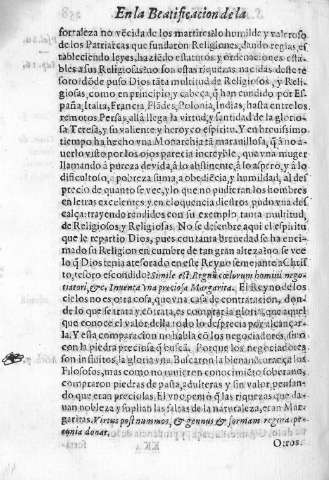 En la Beatificacion de la
fortaleza no vēcida de los martires, lo humilde y valeroso
de los Patriarcas que fundaron Religiones, dando reglas, es
tableciendo leyes, haziēdo estatutos y ordenaciones estā
bles a sus Religiosas: no son estas riquezas nacidas deste te
soro dōde puso Dios tāta multitud de Religiosos, y Reli
giosas, como en principio, y cabeça, q̄ han cundido por Es
paña, Italia, Francia, Flādes, Polonia, Indias, hasta entre los
remotos Persas, allà llega la virtud, y santidad de la glorio-
sa Teresa, y su valiente y heroyco espiritu. Y en breuissimo
tiempo ha hecho vna Monarchia tā marauillosa, q̄ à no a-
uerlo visto por los ojos parecia increyble, que vna muger
llamando à pureza de vida, à lo abstinente, à lo aspero, y à lo
dificultoso, a pobreza suma, a obediēcia, y humildad, al des
precio de quanto se vee, y lo que no pudieran los hombres
en letras excelentes y en eloquencia diestros pudo vna des
calça: trayendo rendidos con su exemplo tanta multitud,
de Religiosos, y Religiosas. No se descubre aqui el espiritu
que le repartio Dios, pues con tanta breuedad se ha enci-
mado su Religion en cumbre de tan gran alteza: no se vee
lo q̄ Dios tenia atesorado en este Reyno semejante à Chris
to, tesoro escondido? Simile est Regnū cœlorum homini nego-
tiatori, &c. Inuenta vna preciosa Margarita. El Reyno de los
cielos no es otra cosa, que vna casa de contratacion, don-
de lo que se trata y cōtrata, es comprar la gloria, que aquel
que conoce el valor della todo lo desprecia por alcançar-
la. Y essa comparacion no habla cō los negociadores, sino
con la piedra preciosa q̄ buscā. Porque los negociadores
son infinitos, la gloria vna. Buscaron la bienauēturāça los
Filosofos, mas como no tuuieron conocimiēto soberano,
compraron piedras de pasta, adulteras y sin valor pensan-
do que eran preciosas. El vno pensò q̄ las riquezas que da-
uan nobleza y suplian las faltas de la naturaleza, eran Mar-
garitas. Virtus post nummos, & genus & formam regina pe-
cunia donat.
Otros